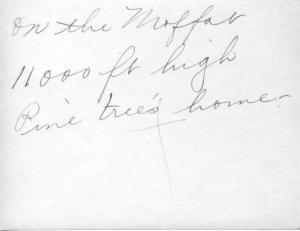 On the Moffat
11000 ft high
Pine tree's home -